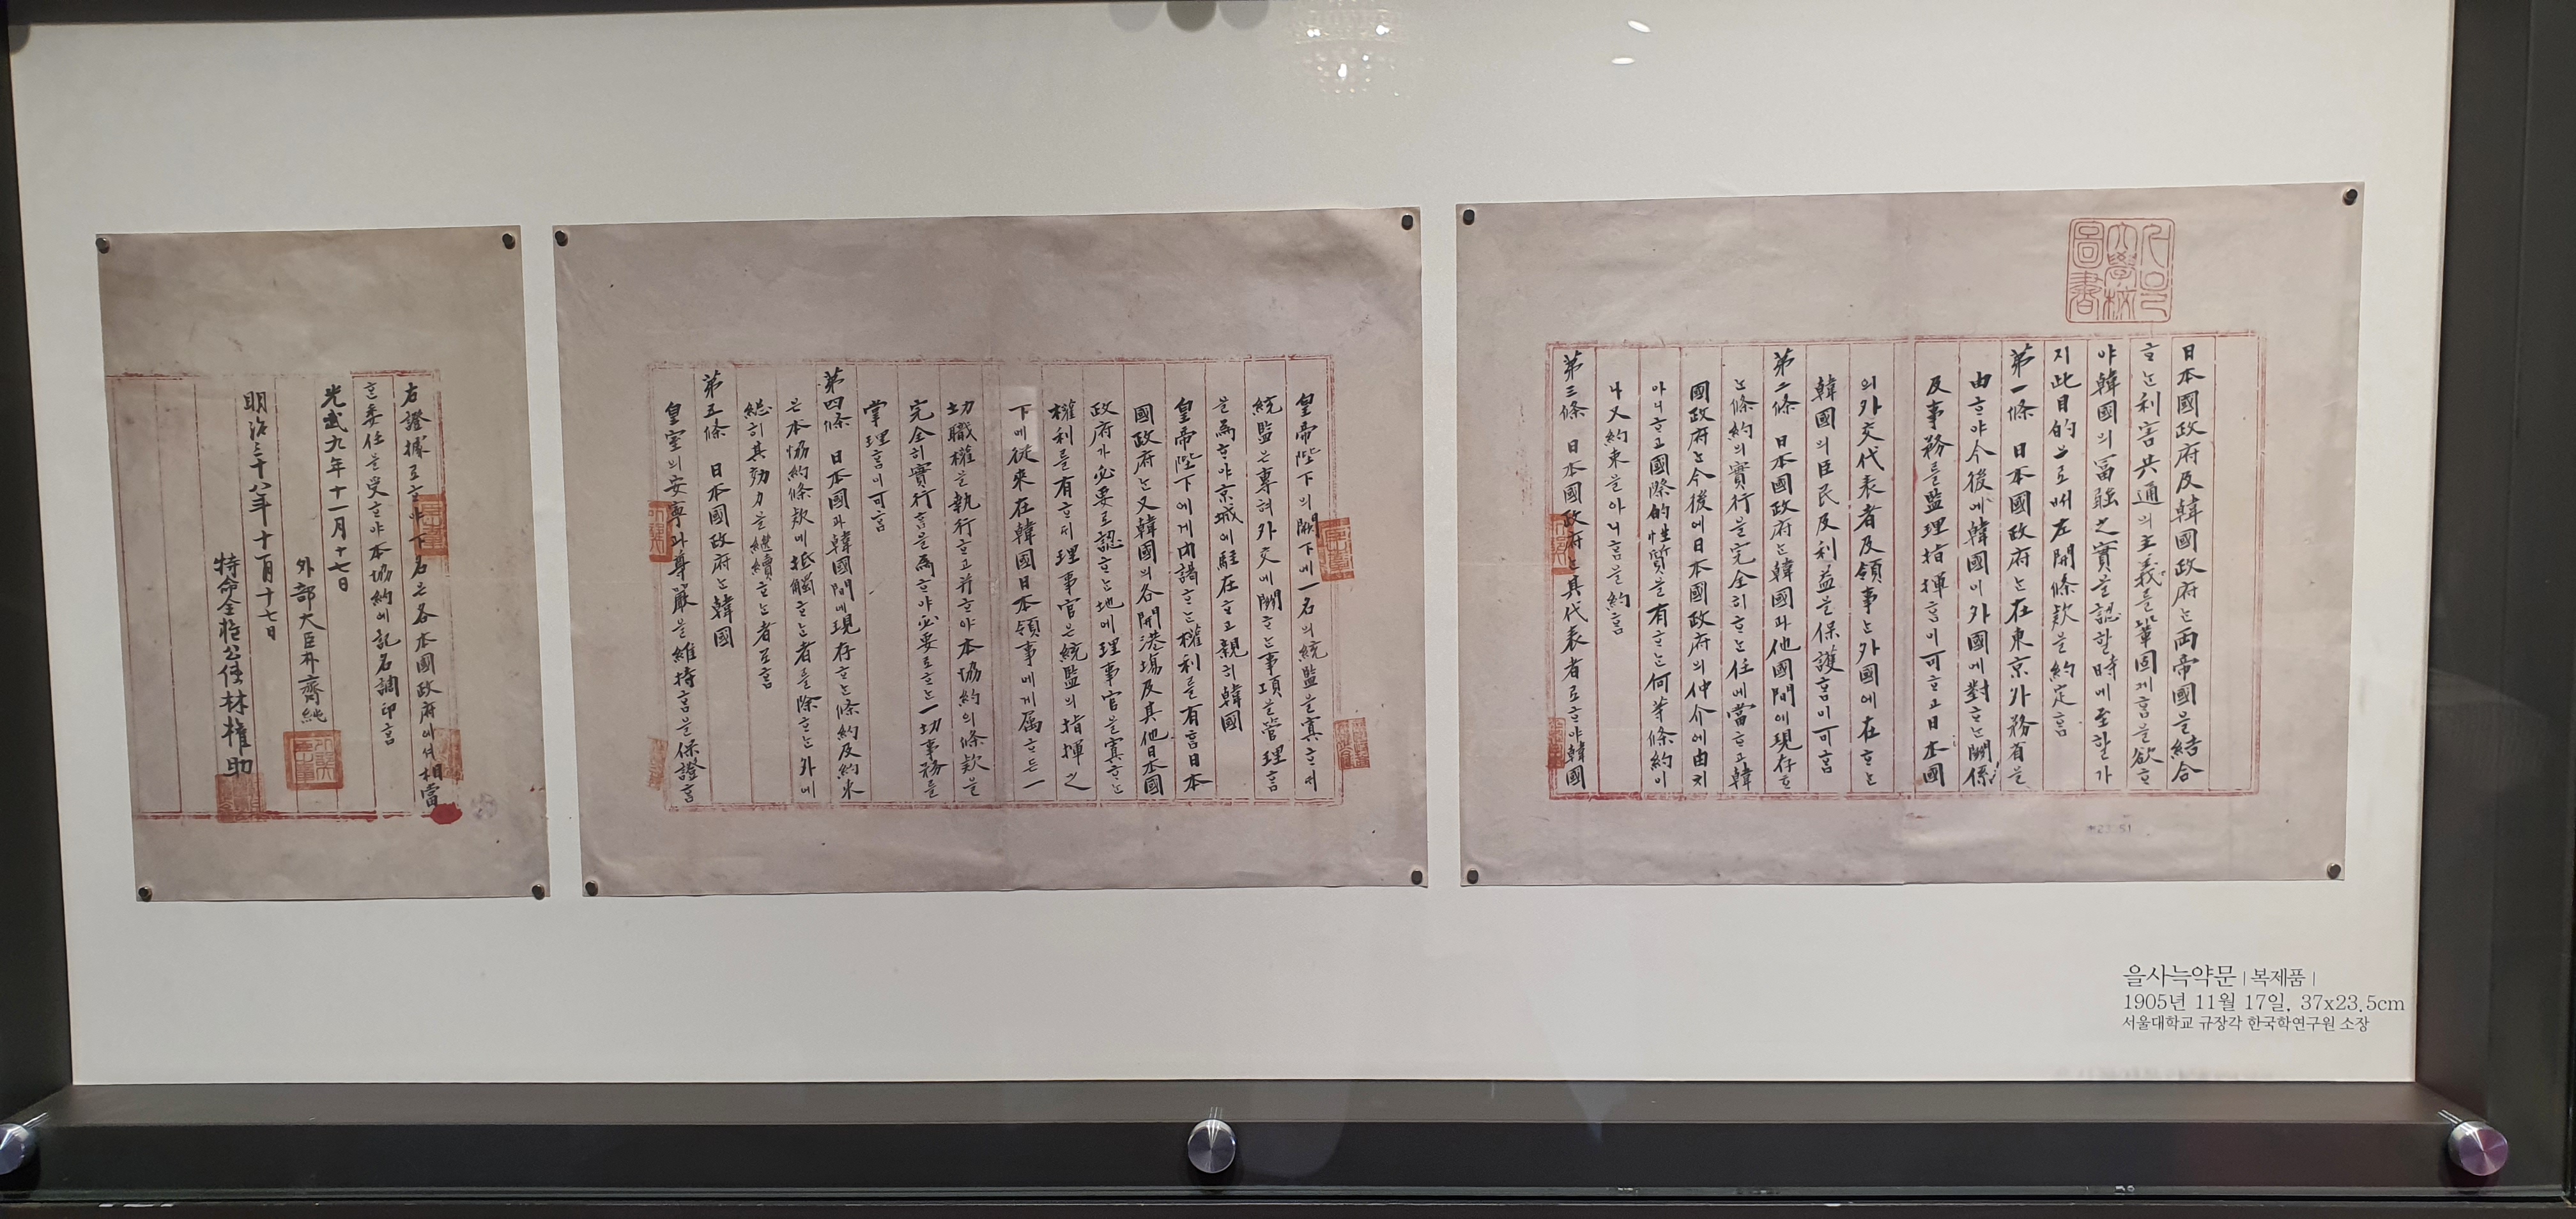 日本國政府及韓國政府는両帝國을結合
ᄒᆞ는利害共通의主義를鞏固케홈을欲ᄒᆞ
야韓國의冨强之實을認할時에至할가
지此目的으로써左開條欵을約定홈
第一條 日本國政府는在東京外務省을
由ᄒᆞ야今後에韓國이外國에對ᄒᆞ는關係
及事務를監理指揮홈이可ᄒᆞ고日本國
의外交代表者及領事는外國에在ᄒᆞ는
韓國의臣民及利益을保護홈이可홈
第二條 日本國政府는韓國과他國間에現存ᄒᆞ
는條約의實行을完全히ᄒᆞ는任에當ᄒᆞ고韓
國政府는今後에日本國政府의仲介에由치
아니ᄒᆞ고國際的性質을有ᄒᆞ는何等條約이
나又約束을아니홈을約홈
第三條 日本國政府는其代表者로ᄒᆞ야韓國
皇帝陛下의闕下에一名의統監을寘ᄒᆞ되
統監은專혀外交에關ᄒᆞ는事項을管理홈
을爲ᄒᆞ야京城에駐在ᄒᆞ고親히韓國
皇帝陛下에게內謁ᄒᆞ는權利를有홈日本
國政府는又韓國의各開港場及其他日本國
政府가必要로認ᄒᆞ는地에理事官을寘ᄒᆞ는
權利를有ᄒᆞ되理事官은統監의指揮之
下에從來在韓國日本領事에게属ᄒᆞ든一
切職權을執行ᄒᆞ고幷ᄒᆞ야本協約의條欵을
完全히實行홈을爲ᄒᆞ야必要로ᄒᆞ는一切事務를
掌理홈이可홈
第四條 日本國과韓國間에現存ᄒᆞ는條約及約束
은本協約條欵에抵觸ᄒᆞ는者를除ᄒᆞ는外에
總히其効力을繼續ᄒᆞ는者로홈
第五條 日本國政府는韓國
皇室의安寧과尊嚴을維持홈을保證홈
右證據로ᄒᆞ야下名은各本國政府에셔相當
ᄒᆞᆫ委任을受ᄒᆞ야本協約에記名調印홈
光武九年十一月十七日
外部大臣朴齊純
明治三十八年十一月十七日
特命全權公使林權助
을사늑약문 | 복제품 |
1905년 11월 17일, 37x23.5cm
서울대학교 규장각 한국학연구원 소장